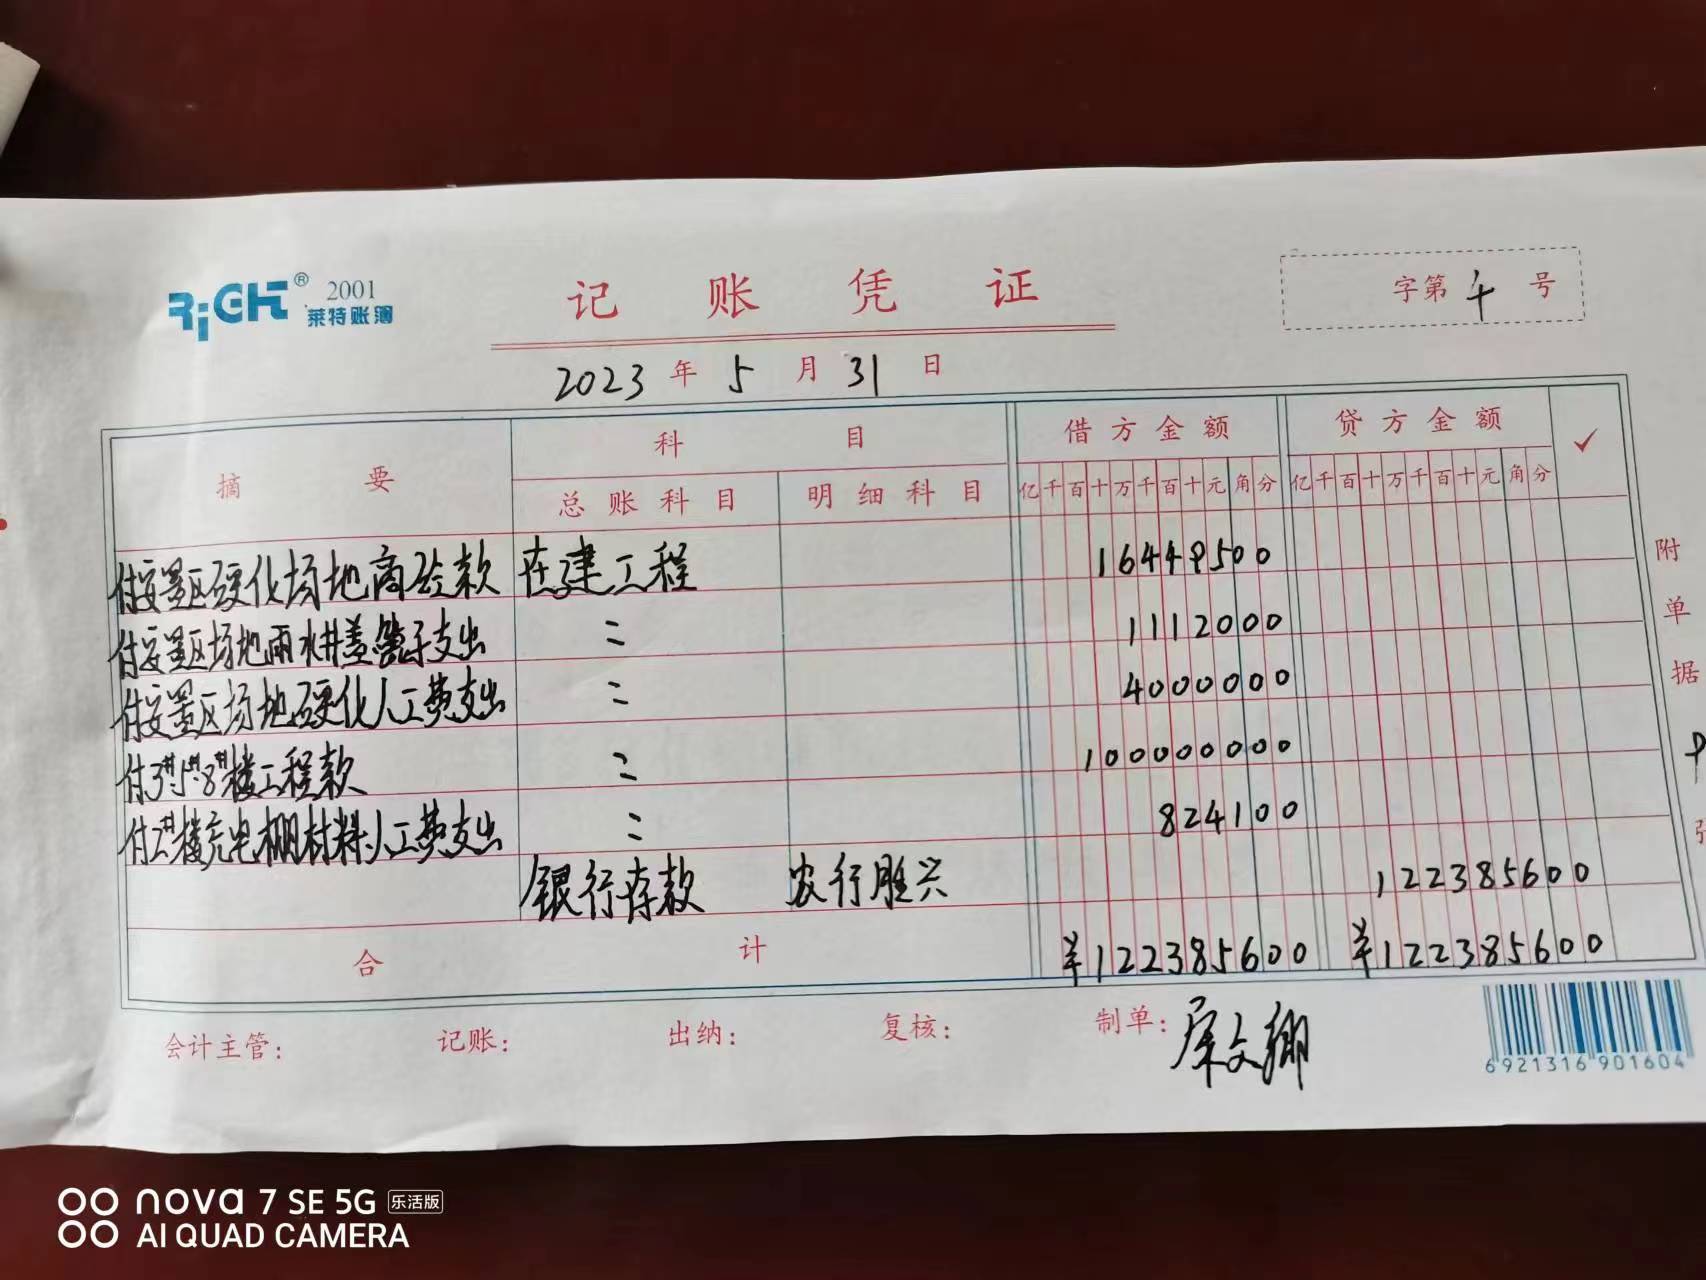 RiGHT® 2001
莱特账簿
记 账 凭 证
字第 4 号
2023 年 5 月 31 日
摘 要 科 目 借方金额 贷方金额 ✓
总账科目 明细科目 亿千百十万千百十元角分 亿千百十万千百十元角分
付安置区硬化场地商砼款 在建工程 16449500
付安置区场地雨水井盖篦子支出 〃 1112000
付安置区场地硬化人工费支出 〃 4000000
楼工程款 〃 100000000
付2#楼充电棚材料人工费支出 〃 824100
银行存款 农行胜兴 122385600
合 计 ¥122385600 ¥122385600
附单据 张
会计主管: 记账: 出纳: 复核: 制单:
6921316901604
nova 7 SE 5G 乐活版
AI QUAD CAMERA